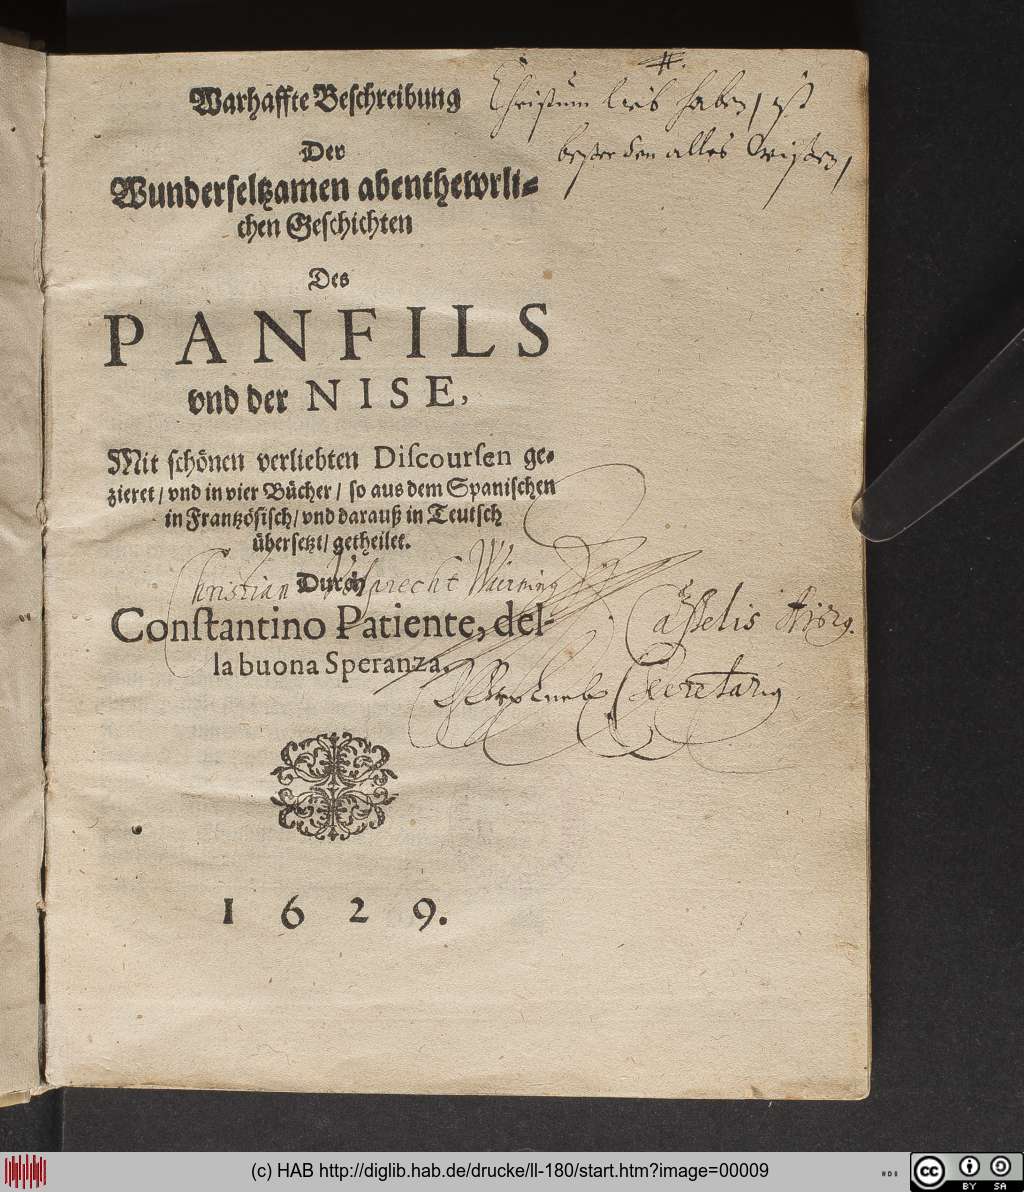 Warhaffte Beschreibung
Christum lieb haben / ist
besser den alles wissen /
Der
Wunderseltzamen abenthewrli-
chen Geschichten
Des
PANFILS
vnd der NISE,
Mit schönen verliebten Discoursen ge-
zieret / vnd in vier Bücher / so aus dem Spanischen
in Frantzösisch / vnd darauß in Teutsch
übersetzt / getheilet.
Christian
Durch
Constantino Patiente, del-
la buona Speranza.
Casselis
Secretarig
1629.
(c) HAB http://diglib.hab.de/drucke/ll-180/start.htm?image=00009
cc BY SA